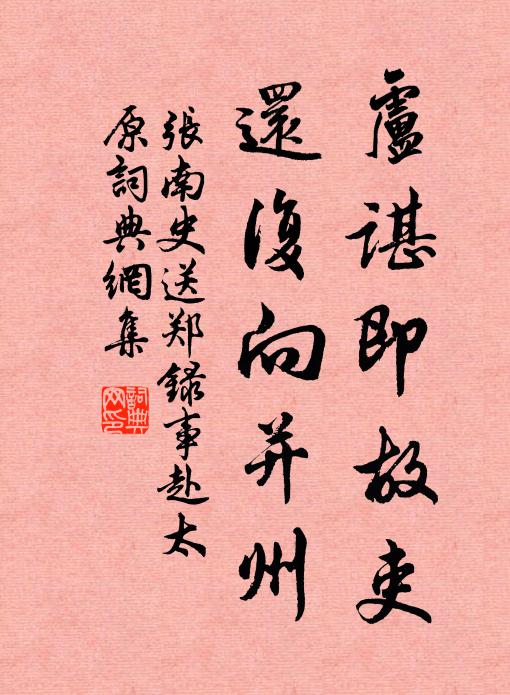 盧諶即故吏
還復向并州
張南史送郑録事赴太
原詞典網集
詞典网印